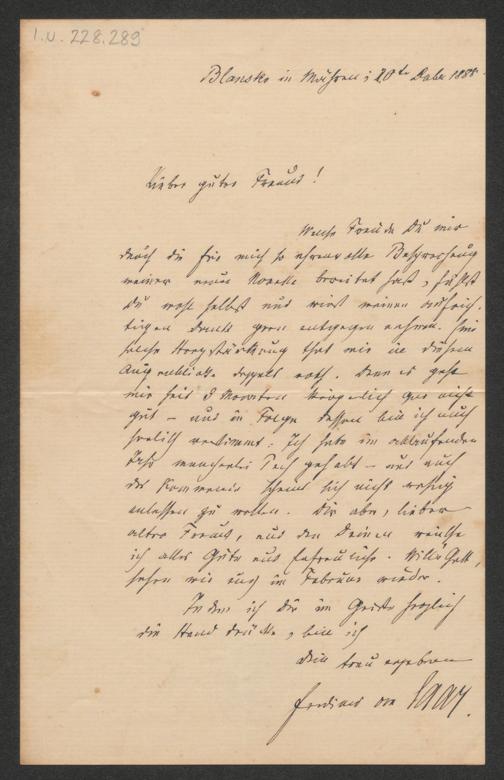 I.N. 228.289
Blansko in Mähren; 20te Dcbr 1888.
Lieber guter Freund!
Welche Freude Du mir
durch die für mich so ehrenvolle Besprechung
meiner neuen Novelle bereitet hast, fühlst
Du wohl selbst und wirst meinen aufrich-
tigen Dank gern entgegen nehmen. Eine
solche Herzstärkung that mir in diesem
Augenblicke doppelt noth. Denn es geht
mir seit 2 Monaten körperlich gar nicht
gut – und in Folge dessen bin ich auch
seelisch verstimmt. Ich habe im ablaufenden
Jahr mancherlei Pech gehabt – und auch
das kommende scheint sich nicht rosig
anlassen zu wollen. Dir aber, lieber
alter Freund, und den Deinen wünsche
ich alles Gute und Erfreuliche. Will's Gott,
sehen wir uns im Februar wieder.
Indem ich Dir im Geiste herzlich
die Hand drücke, bin ich
Dein treu ergebener
Ferdinand von Saar.